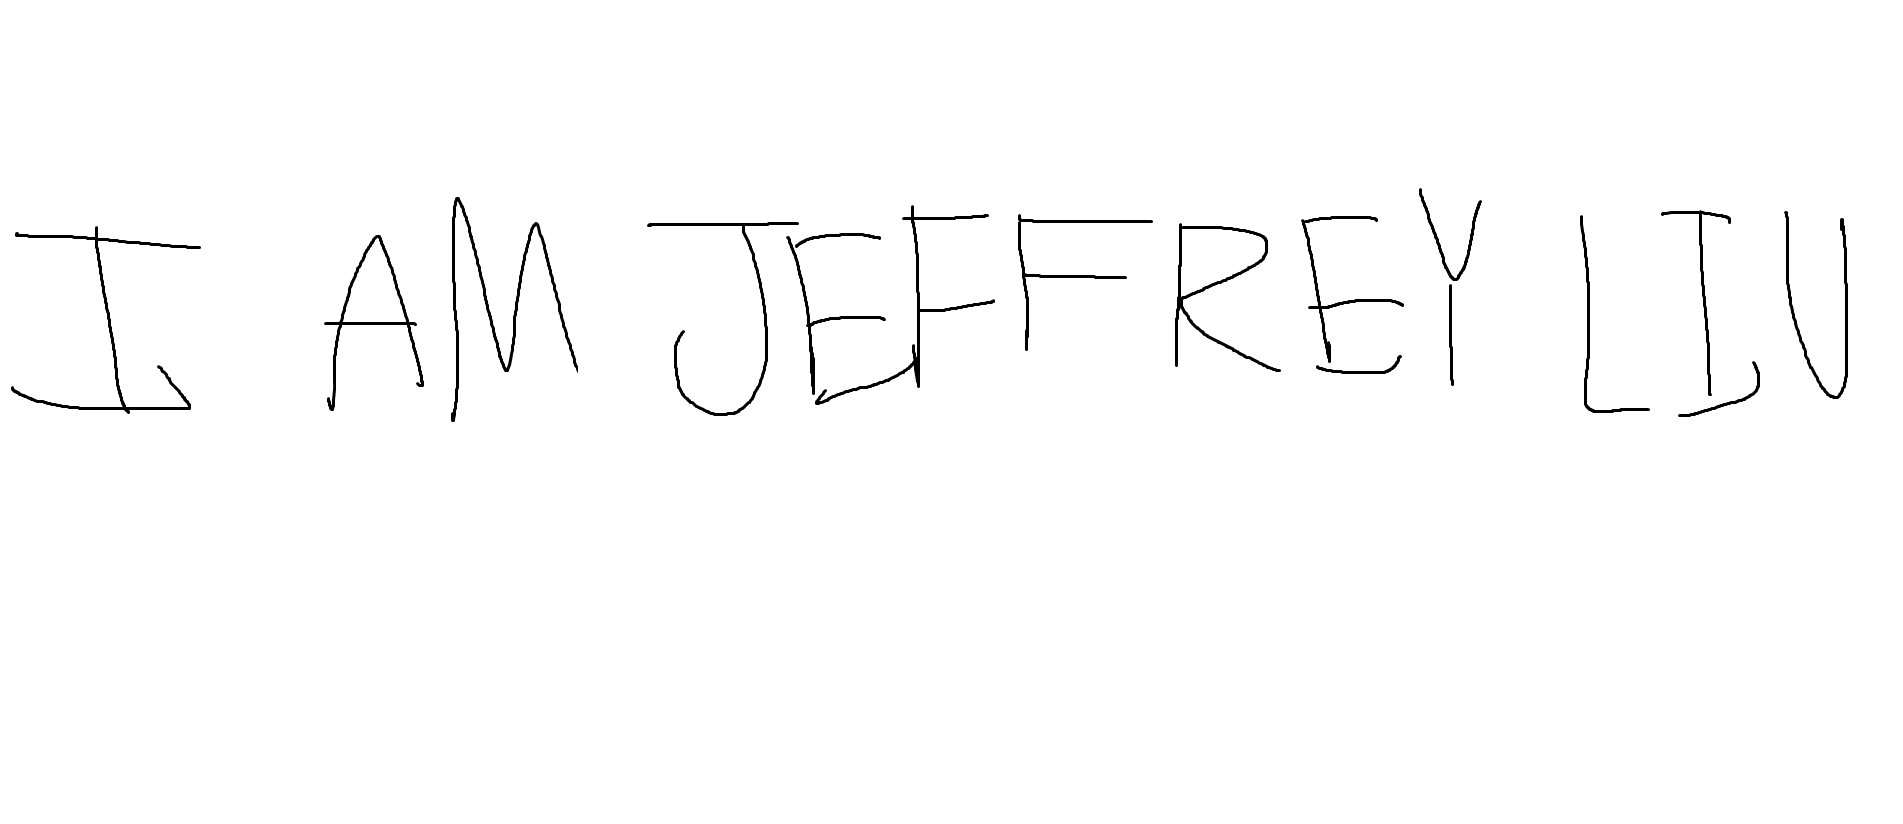 I AM JEFFREY LIU